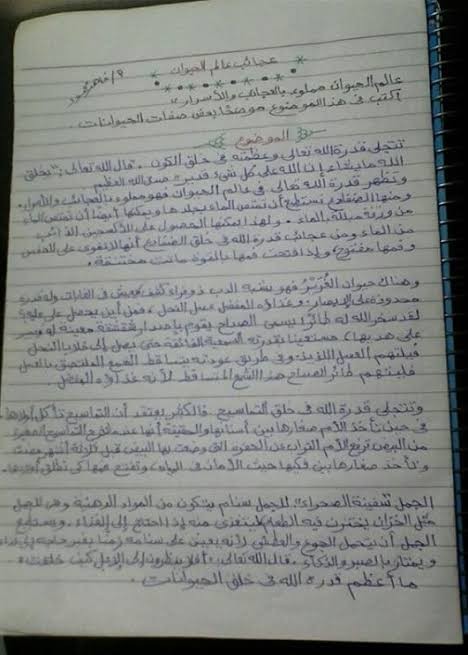 عجائب عالم الحيوان
عالم الحيوان مملوء بالعجائب والأسرار
أكتب في هذا الموضوع موضحًا بعض صفات الحيوانات.
الموضوع
تتجلى قدرة الله تعالى وعظمته في خلق الكون. قال الله تعالى: "يخلق
الله ما يشاء إن الله على كل شئ قدير" صدق الله العظيم
وتظهر قدرة الله تعالى في عالم الحيوان فهو مملوء بالعجائب والأسرار
ومنها الضفادع تستطيع أن تمتص الماء بجلدها ويمكنها أيضًا أن تمتص الماء
من ورقة مبللة بالماء. ولهذا يمكنها الحصول على الأكسجين الذائب
من الماء ومن عجائب قدرة الله في خلق الضفادع أنها لا تقوى على التنفس
وفمها مفتوح، وإذا فتحت فمها بالقوة ماتت مختنقة.
وهناك حيوان الغُرَيْرُ فهو يشبه الدب ذو فراء كثيف يعيش في الغابات وله قدرة
محدودة على الإبصار، وغذاؤه المفضل عسل النحل، فمن أين يحصل عليه؟
لقد سخر الله له طائرًا يسمى الصباح يقوم بإصدار شقشقة معينة له ويسير
على هديها مستعينا بقدرته السمعية الفائقة حتى يصل إلى خلايا النحل
فيلتهم العسل اللذيذ، وفي طريق عودته يتساقط الشمع الملتصق بالعسل
فيلتهم طائر الصباح هذا الشمع المتساقط لأنه غذاؤه المفضل.
وتتجلى قدرة الله في خلق التماسيح. فالكثير يعتقد أن التماسيح تأكل أولادها
في حين تأخذ الأم صغارها بين أسنانها والحقيقة أنها عندما تخرج التماسيح الصغيرة
من البيض ترفع الأم التراب عن الحفرة التي وضعت بها البيض قبل ثلاثة أشهر
وتأخذ صغارها بين فكيها حيث الأمان في المياه، وتفتح فمها كي تطلق
الجمل "سفينة الصحراء" للجمل سنام يتكون من المواد الدهنية وهي للجمل
مثل الخزان يختزن فيه الطعام ليتغذى منه إذا احتاج إلى الغذاء. ويستطيع
الجمل أن يتحمل الجوع والعطش لأنه يعيش على سنامه زمنًا بغير حاجة إلى غذاء
ويمتاز بالصبر والذكاء. قال الله تعالى: "أفلا ينظرون إلى الإبل كيف خلقت"
ما أعظم قدرة الله في خلق الحيوانات.